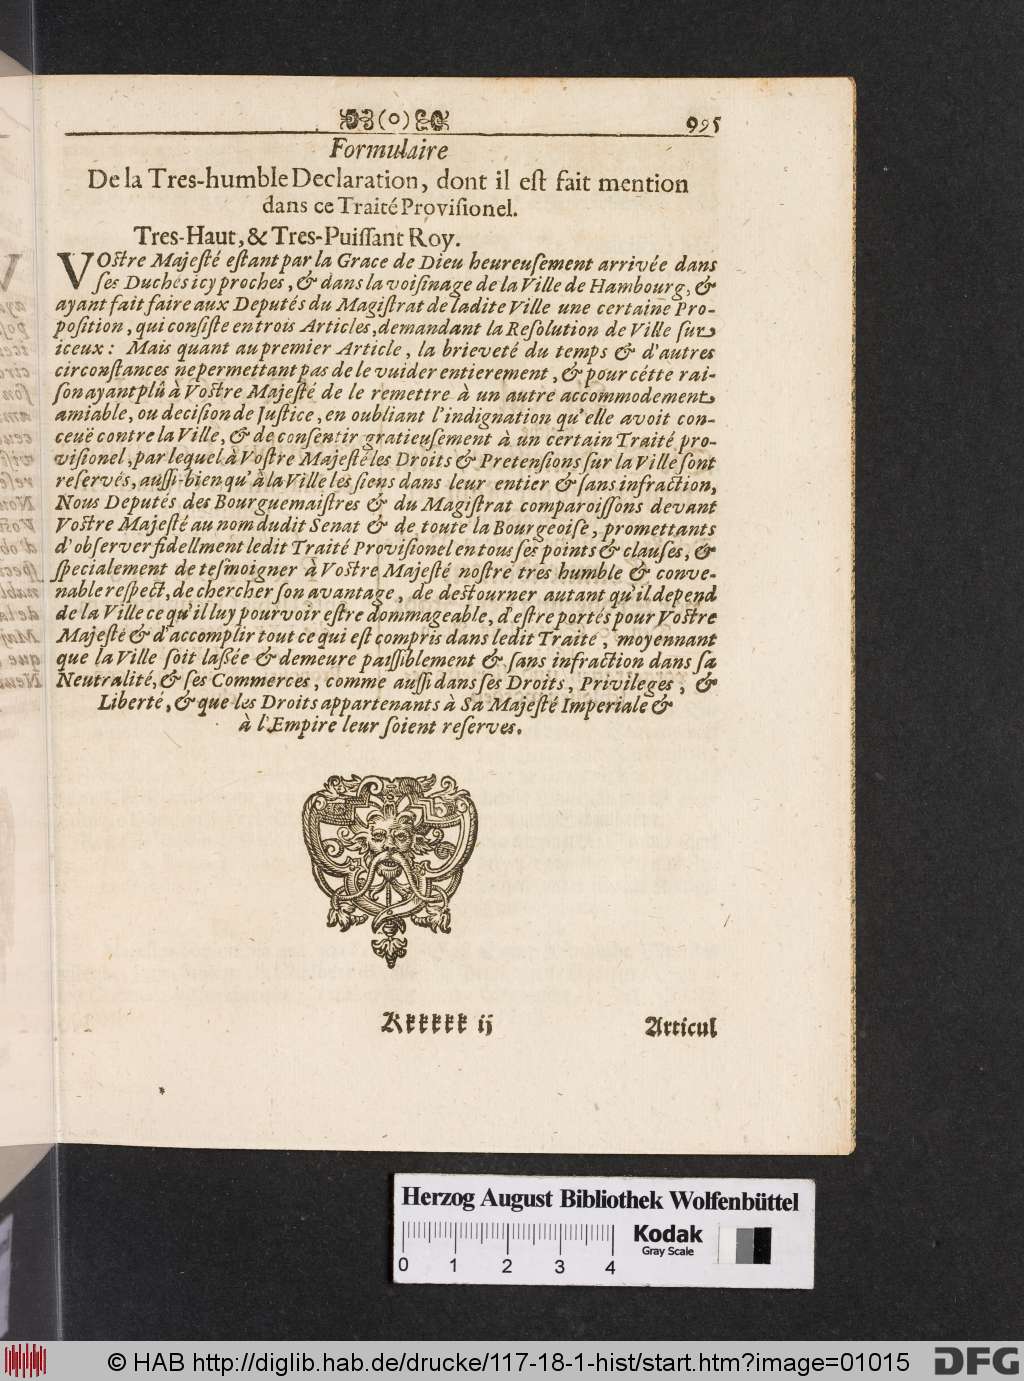 (o) 995
Formulaire
De la Tres-humble Declaration, dont il eſt fait mention
dans ce Traité Proviſionel.
Tres-Haut, & Tres-Puiſſant Roy.
VOſtre Majeſté eſtant par la Grace de Dieu heureuſement arrivée dans
ſes Duchés icy proches, & dans la voiſinage de la Ville de Hambourg, &
ayant fait faire aux Deputés du Magiſtrat de ladite Ville une certaine Pro-
poſition, qui conſiſte en trois Articles, demandant la Reſolution de Ville ſur
iceux: Mais quant au premier Article, la brieveté du temps & d'autres
circonſtances ne permettant pas de le vuider entierement, & pour cétte rai-
ſon ayant plû à Voſtre Majeſté de le remettre à un autre accommodement
amiable, ou deciſion de Juſtice, en oubliant l'indignation qu'elle avoit con-
ceuë contre la Ville, & de conſentir gratieuſement à un certain Traité pro-
viſionel, par lequel à Voſtre Majeſté les Droits & Pretenſions ſur la Ville ſont
reſervés, auſſi-bien qu'à la Ville les ſiens dans leur entier & ſans infraction,
Nous Deputés des Bourguemaiſtres & du Magiſtrat comparoiſſons devant
Voſtre Majeſté au nom dudit Senat & de toute la Bourgeoiſe, promettants
d'obſerver fidellment ledit Traité Proviſionel en tous ſes points & clauſes, &
ſpecialement de teſmoigner à Voſtre Majeſté noſtre tres humble & conve-
nable reſpect, de chercher ſon avantage, de deſtourner autant qu'il depend
de la Ville ce qu'il luy pourvoir eſtre dommageable, d'eſtre portés pour Voſtre
Majeſté & d'accomplir tout ce qui eſt compris dans ledit Traité, moyennant
que la Ville ſoit laßée & demeure paiſſiblement & ſans infraction dans ſa
Neutralité, & ſes Commerces, comme auſſi dans ſes Droits, Privileges, &
Liberté, & que les Droits appartenants à Sa Majeſté Imperiale &
à l'Empire leur ſoient reſerves.
Kkkkkk ij Articul
Herzog August Bibliothek Wolfenbüttel
Kodak
Gray Scale
0 1 2 3 4
© HAB http://diglib.hab.de/drucke/117-18-1-hist/start.htm?image=01015 DFG